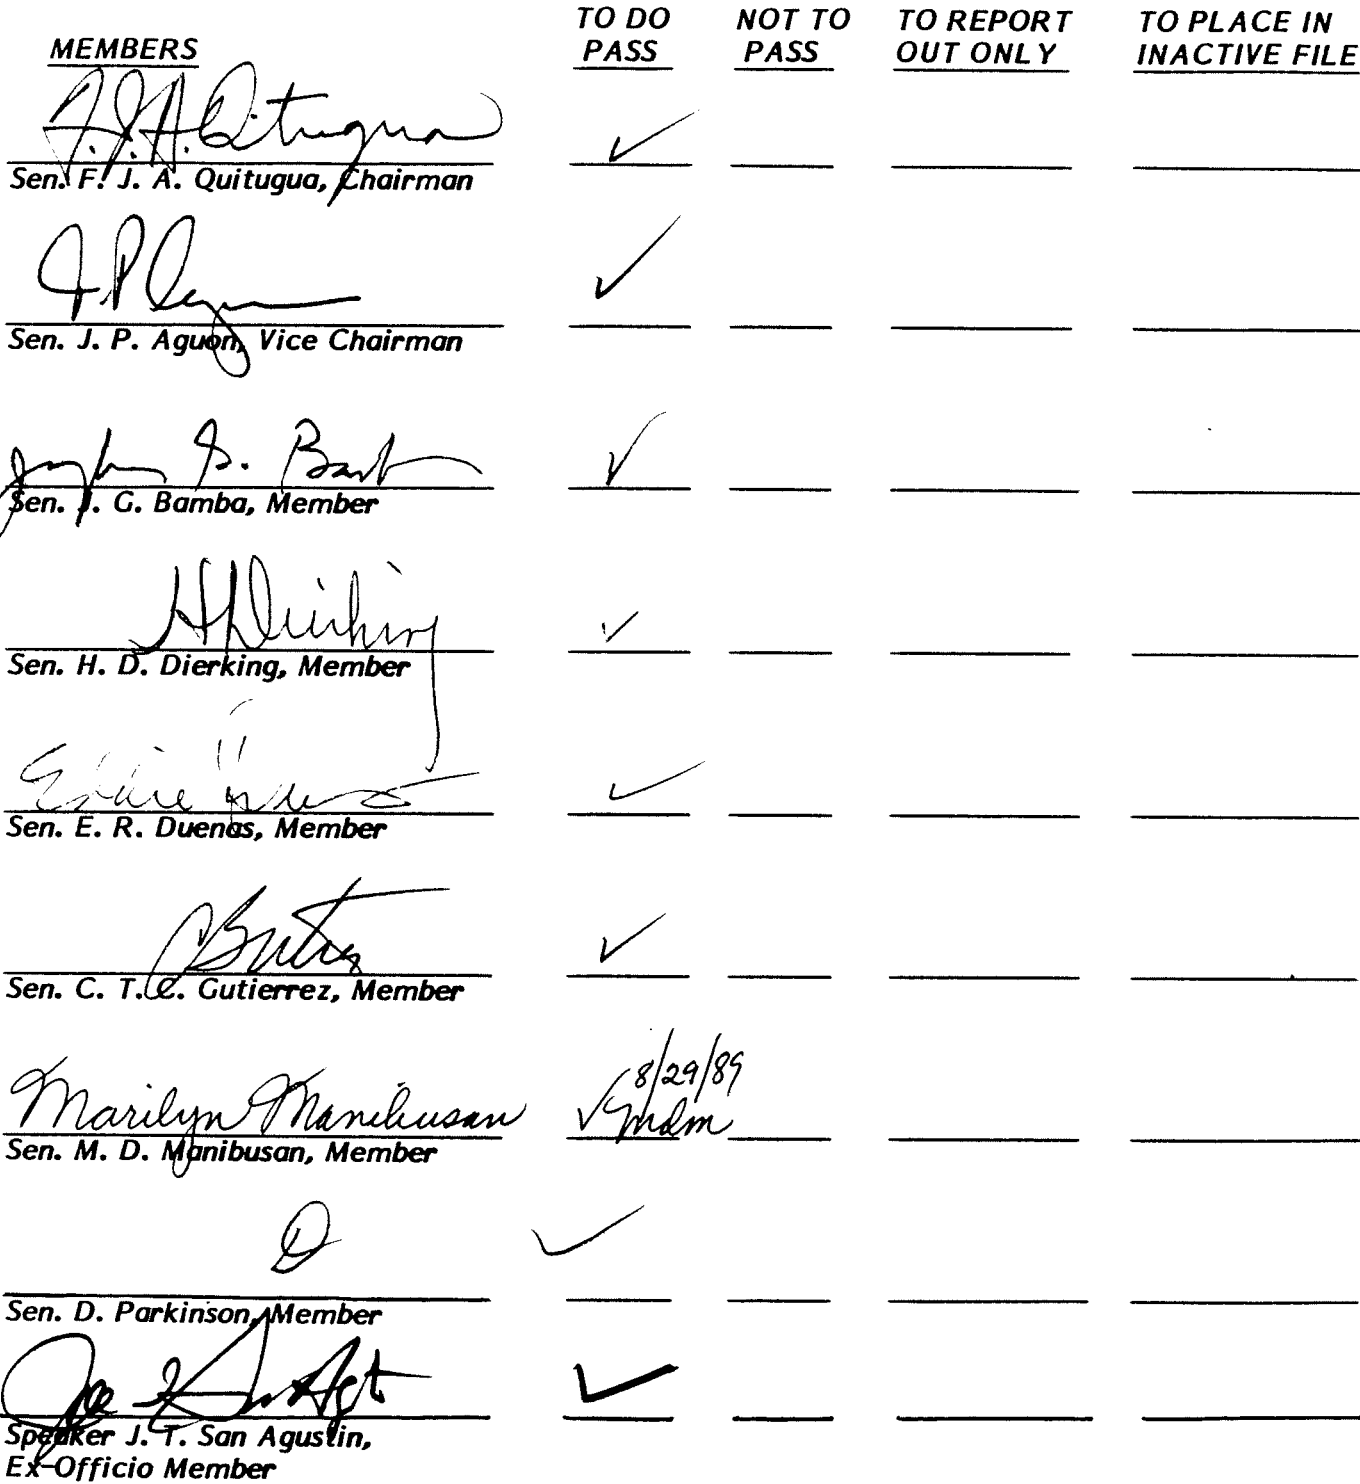 MEMBERS
TO DO PASS
NOT TO PASS
TO REPORT OUT ONLY
TO PLACE IN INACTIVE FILE
Sen. F. J. A. Quitugua, Chairman
Sen. J. P. Aguon, Vice Chairman
Sen. J. G. Bamba, Member
Sen. H. D. Dierking, Member
Sen. E. R. Duenas, Member
Sen. C. T. C. Gutierrez, Member
8/29/89
Marilyn Manibusan
mdm
Sen. M. D. Manibusan, Member
Sen. D. Parkinson, Member
Speaker J. T. San Agustin,
Ex-Officio Member